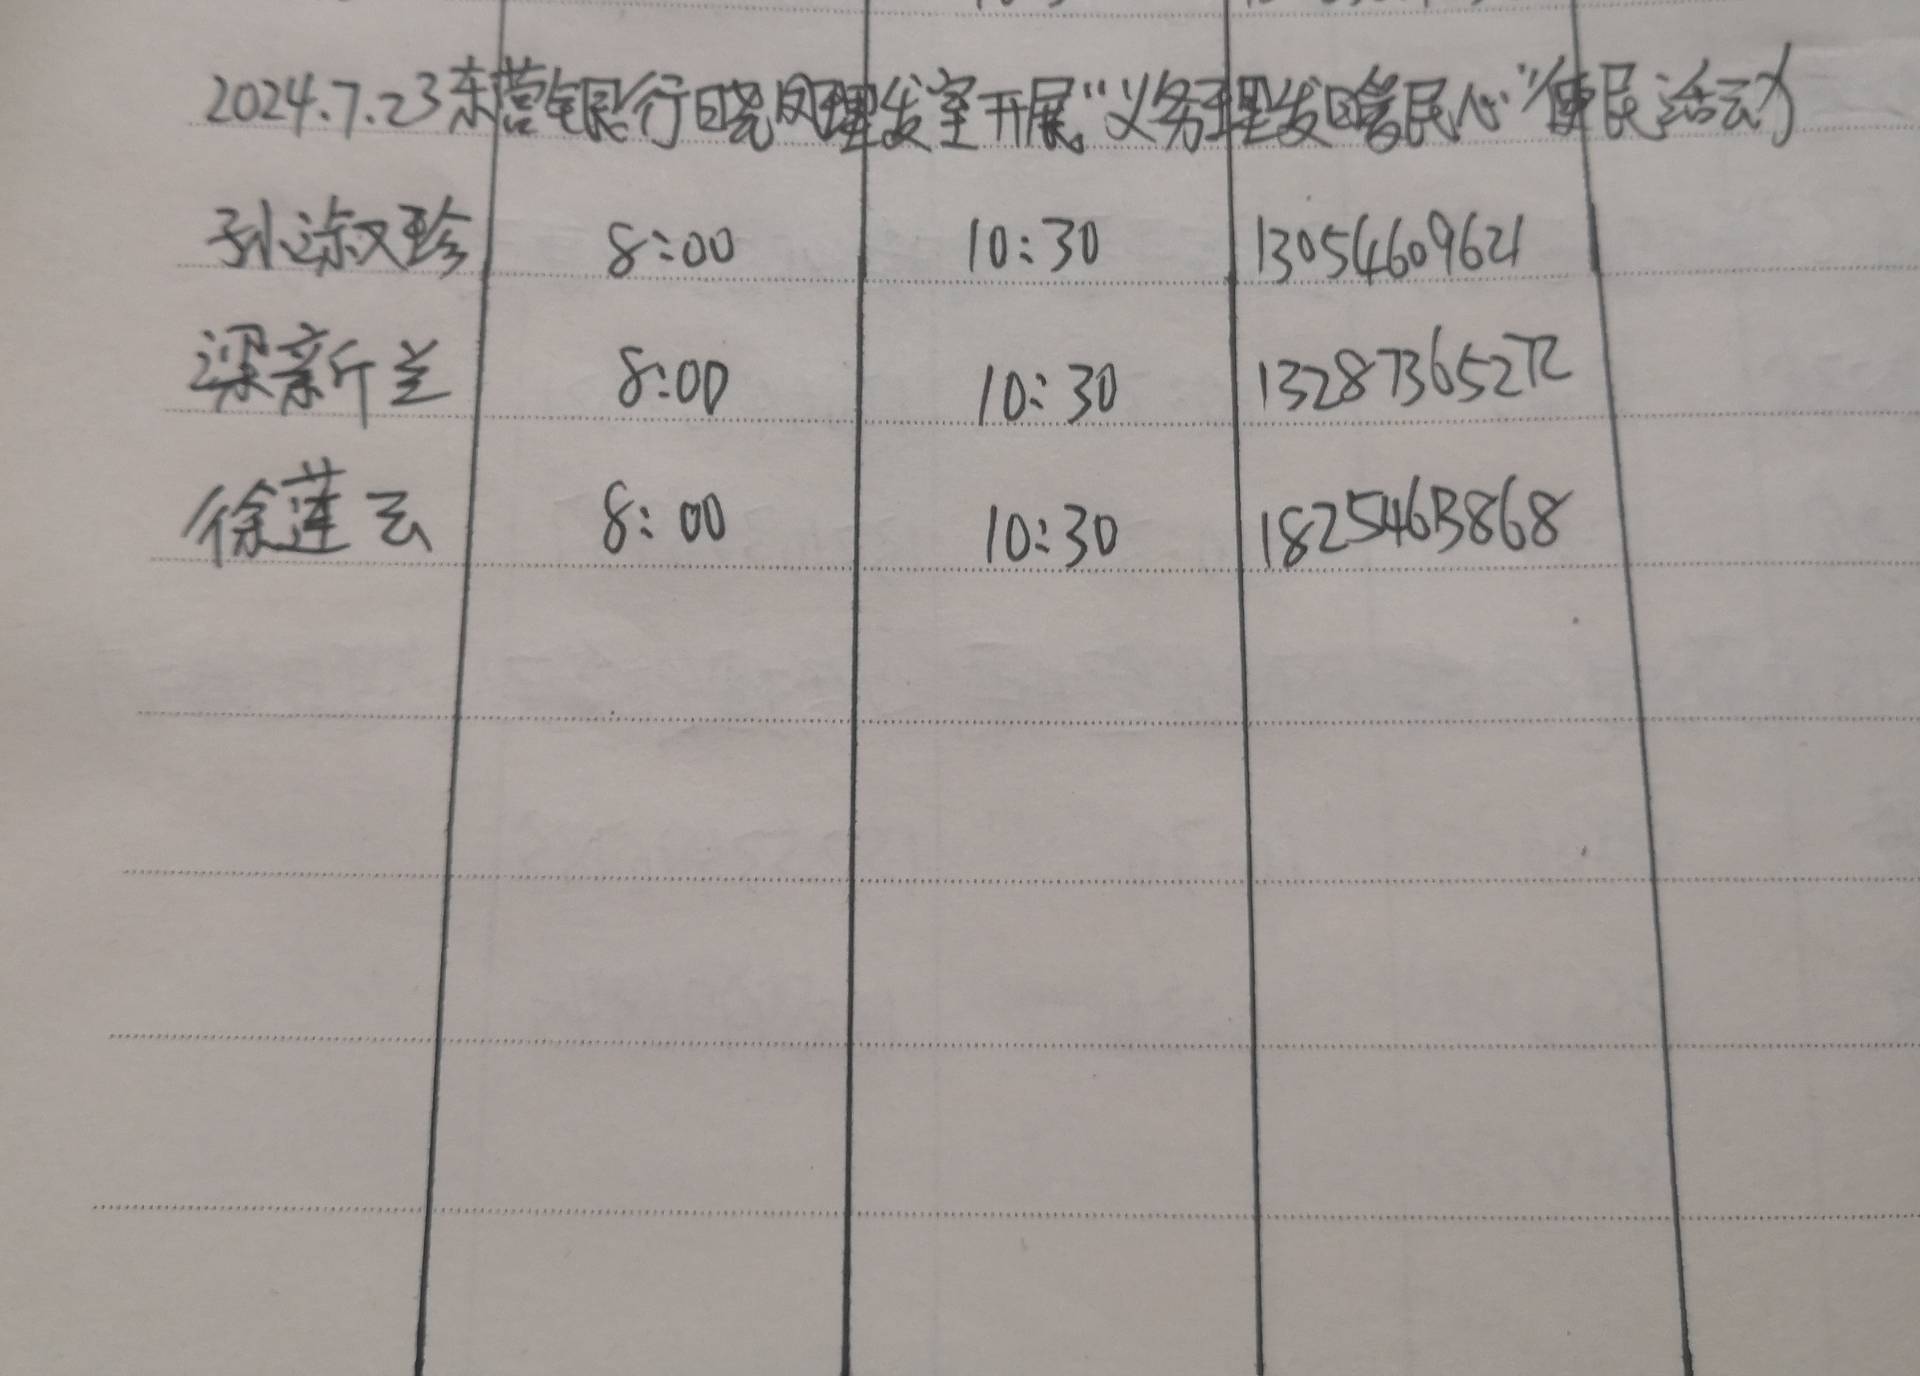 2024.7.23东营银行晓风理发室开展“义务理发暖民心”便民活动
孙淑珍 8:00 10:30 13054609621
梁新兰 8:00 10:30 13287365272
徐莲云 8:00 10:30 18254613868